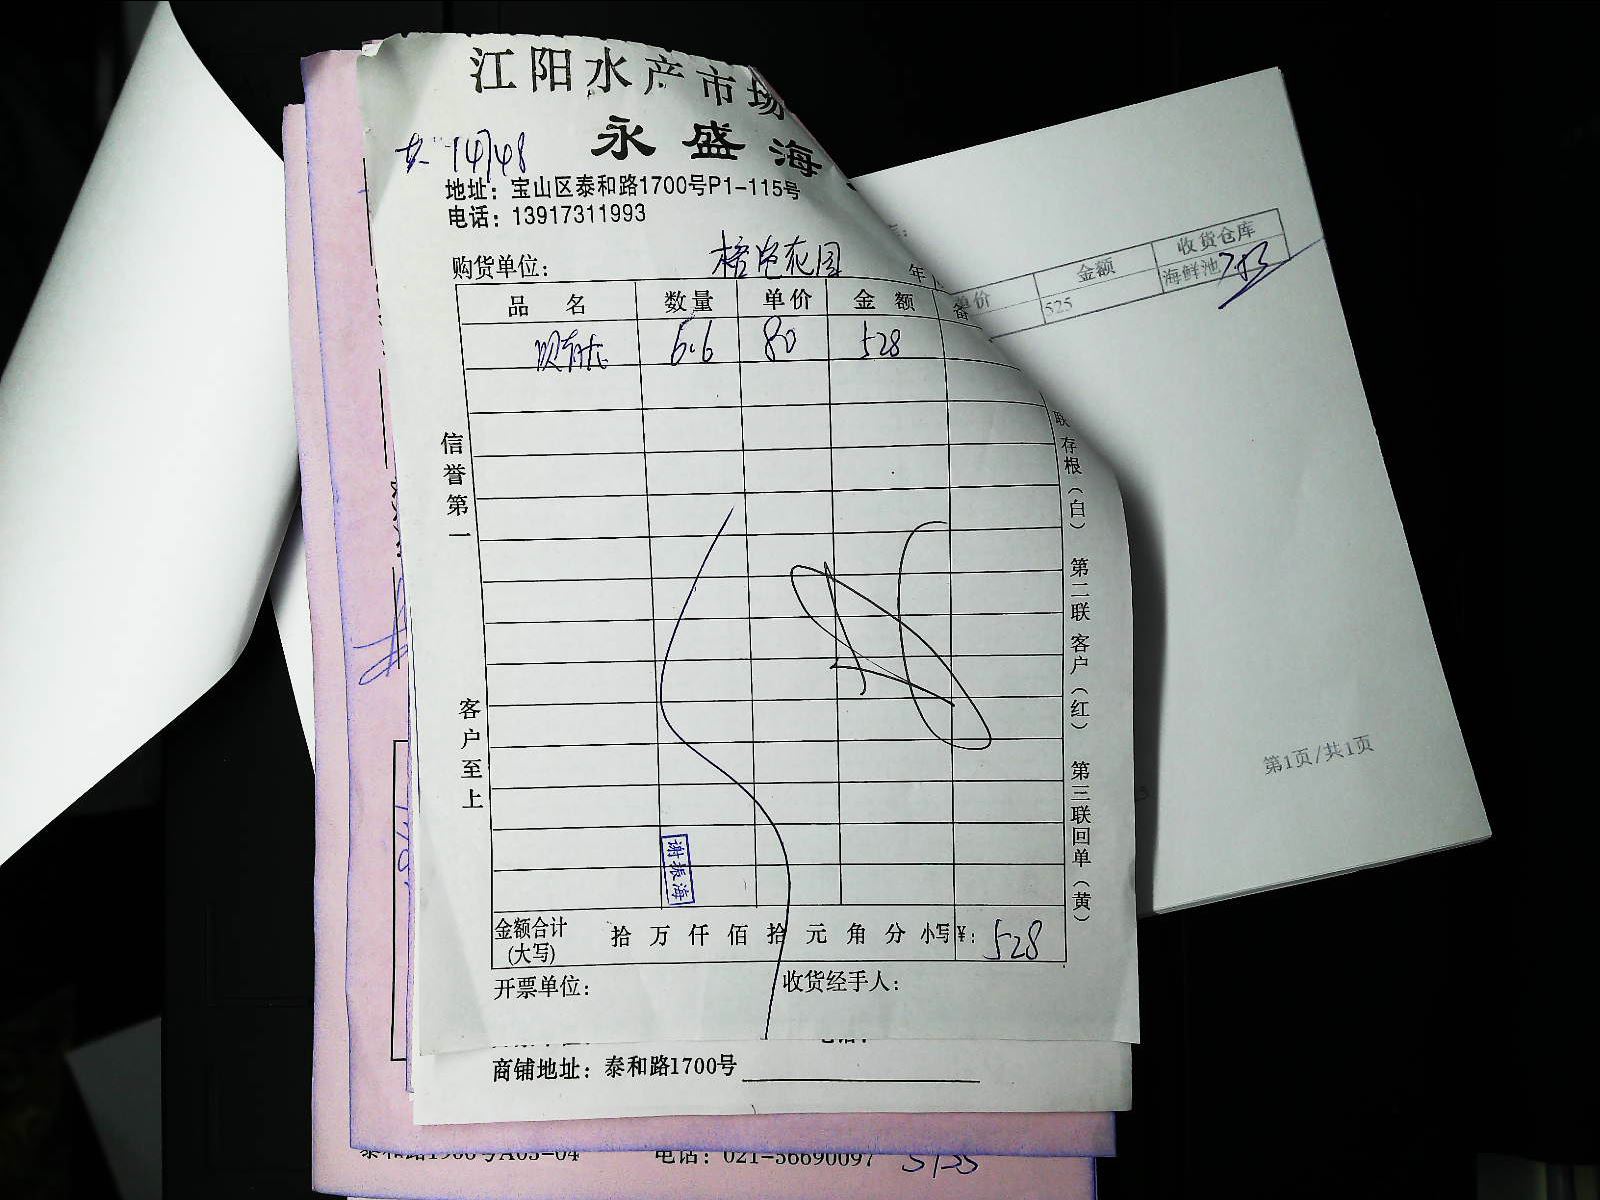 江阳水产市场
永盛海
共 14748
地址：宝山区泰和路1700号P1-115号
电话：13917311993
购货单位： 花园 年
品 名 数量 单价 金 额 备
6.6 80 528
信誉第一
客户至上
联存根（白） 第二联 客户（红） 第三联回单（黄）
谢振海
金额合计(大写) 拾 万 仟 佰 拾 元 角 分 小写¥： 528
开票单位： 收货经手人：
商铺地址：泰和路1700号
电话：021-56690097
单价 金额 收货仓库
525 海鲜池
第1页/共1页